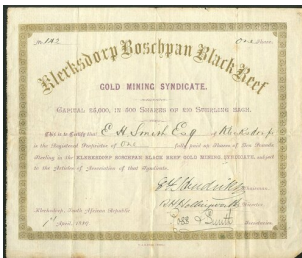 No. 112 One Share.
Klerksdorp Boschpan Black Reef
GOLD MINING SYNDICATE.
CAPITAL £4,000, IN 400 SHARES OF £10 STERLING EACH.
This is to Certify that E. H. Smith Esq of Klerksdorp
is the Registered Proprietor of One fully paid up Shares of Ten Pounds
Sterling in the KLERKSDORP BOSCHPAN BLACK REEF GOLD MINING SYNDICATE, subject
to the Articles of Association of that Syndicate.
Klerksdorp, South African Republic
1st April